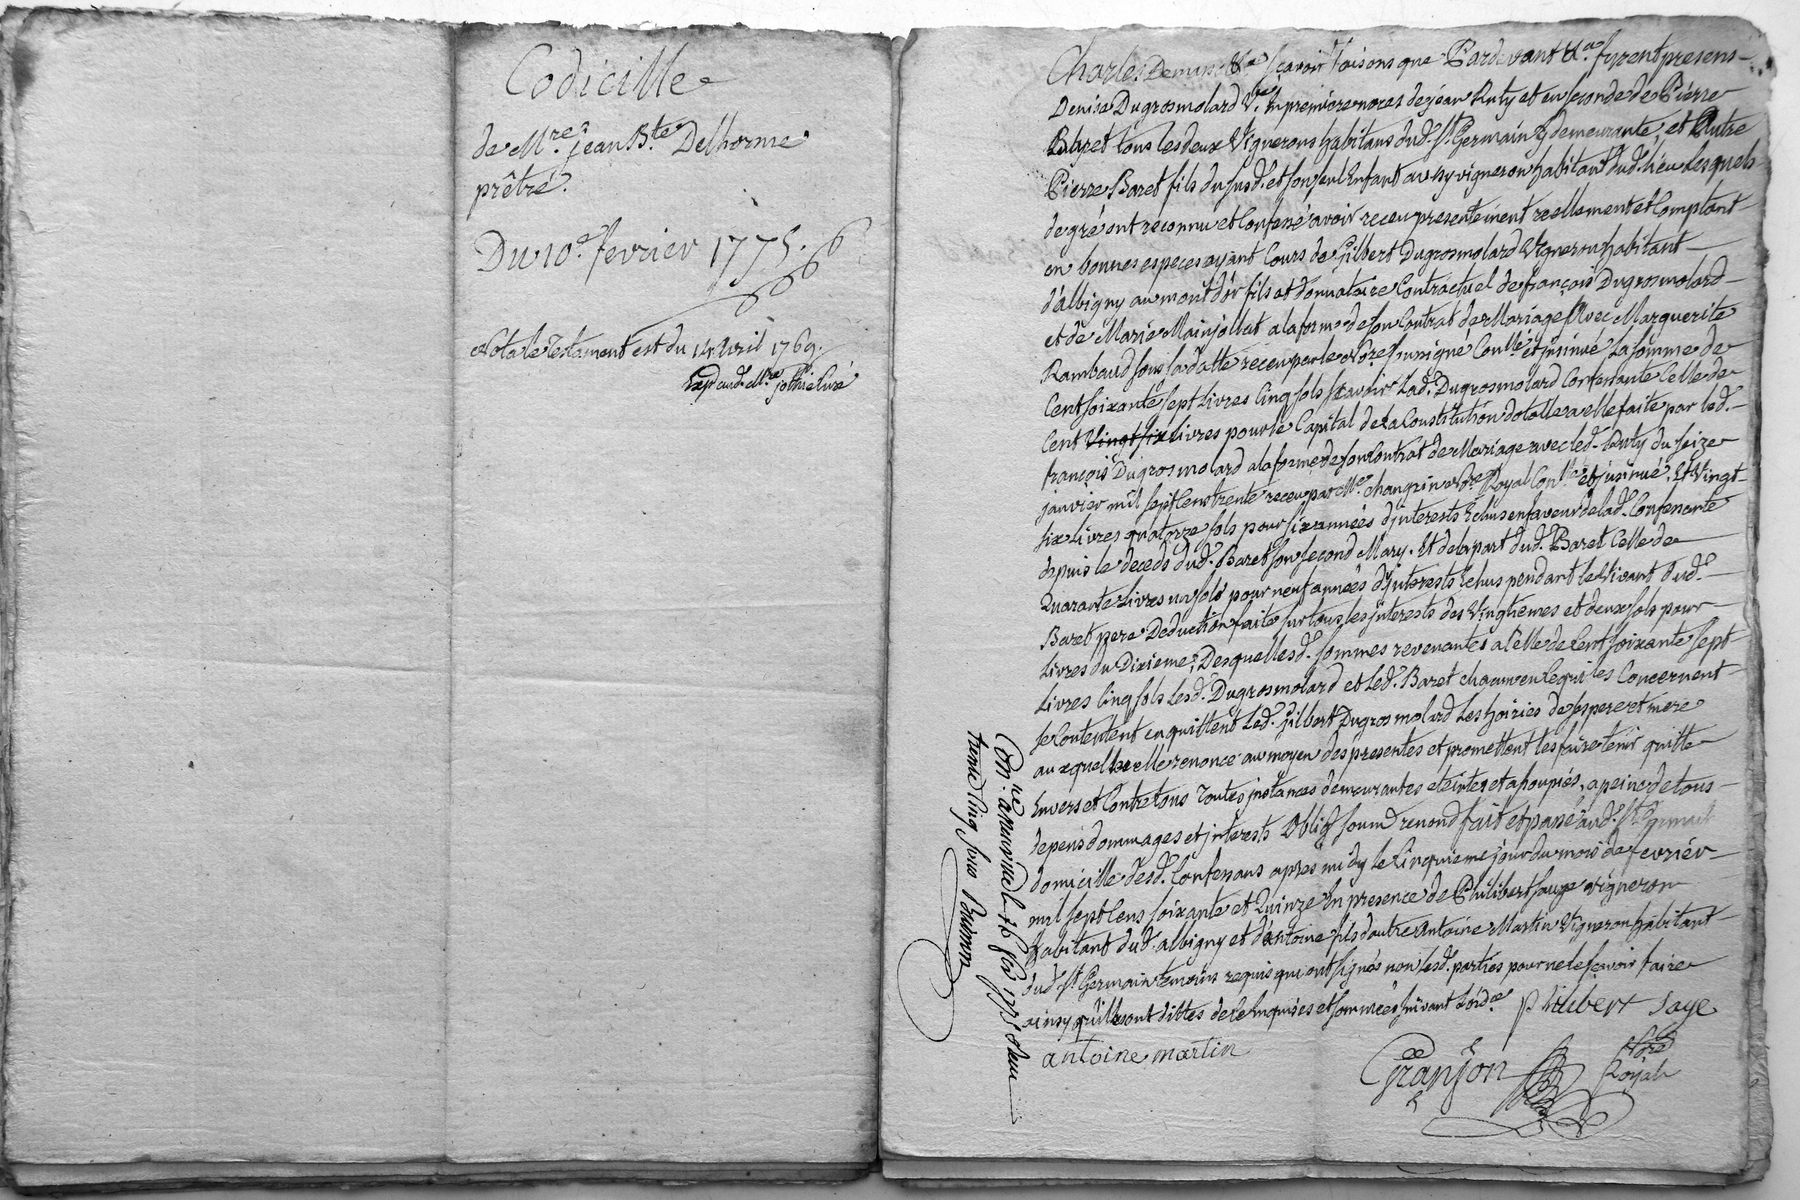 Codicille
de Mre. jean Bte. Delhorme
prêtre.
Du 10e. fevrier 1775.
Nota le Testament est du 14 Avril 1769.
Exp. aud. Mre
Charles Demans &a. sçavoir faisons que Pardevant &a. furent presens
Denise Dugrosmolard Ve. En premiere noces de jean Ruty et en seconde de Pierre
Baret tous les deux Vignerons habitans dud. St. Germain y demeurante, et Autre
Pierre Baret fils du susd. et son seul Enfant aussy vigneron habitant dud. lieu Lesquels
de gré ont reconnu et Confessé avoir receu presentement reellement et Comptant
en bonnes especes ayant Cours de Gilbert Dugrosmolard Vigneron habitant
d'albigny au mont d'or fils et donnataire Contractuel de françois Dugrosmolard
et de Marie Mainjollet a la forme de son Contrat de Mariage Avec Marguerite
Rambaud sous sa datte receu par le Nore. soussigné Conllé. et jnsinué La somme de
Cent soixante sept Livres Cinq sols sçavoir Lad. Dugrosmolard Confessante Celle de
Cent Vingt six Livres pour le Capital de la Constitution dotalle a elle faite par led.
françois Dugrosmolard a la forme de son Contrat de Mariage avec led. Ruty du seize
janvier mil sept Cens trente receu par Me. changrin Nore. Royal Conllé. et jnsinué, Et Vingt
six Livres quatorze sols pour six années d'jnterests Echus en faveur de lad. Confessante
depuis le decedz dud. Baret son second Mary. Et de la part dud. Baret Celle de
Quarante Livres un sols pour neuf années d'jnterests Echus pendant le Vivant dud.
Baret pere Deduction faite sur tous les jnterests des Vingtiemes et deux sols pour
Livres du Dixieme, Desquelles d. sommes revenantes a Celle de Cent soixante sept
Livres Cinq sols Lesd. Dugrosmolard et Led. Baret chacun en Ce qui les Concernent
se Contentent en quittent Led. Gilbert Dugrosmolard Les hoiries de ses pere et mere
auxquelles elle renonce au moyen des presentes et promettent les faire tenir quitte
Envers et Contre tous Toutes jnstances demeurantes eteintes et assoupies, a peine de tous
depens dommages et jnterests Oblig. soum. renond. fait et passé aud. St. Germain
domicille desd. Confessans apres midy le Cinquieme jour du mois de fevrier
mil sept Cens soixante et Quinze En presence de Philibert Sauge vigneron
habitant dud. albigny et d'Antoine fils d'autre Antoine Martin Vigneron habitant
dud. St. Germain temoins requis qui ont signés non lesd. parties pour ne le sçavoir faire
ainsy qu'ils ont dittes de ce Enquises et sommées suivant L'ordce. philibert sage
antoine martin
Granjon Nore
Royal
Conle. a neuville le 16 fer 1775 Reçu
trente Cinq sous